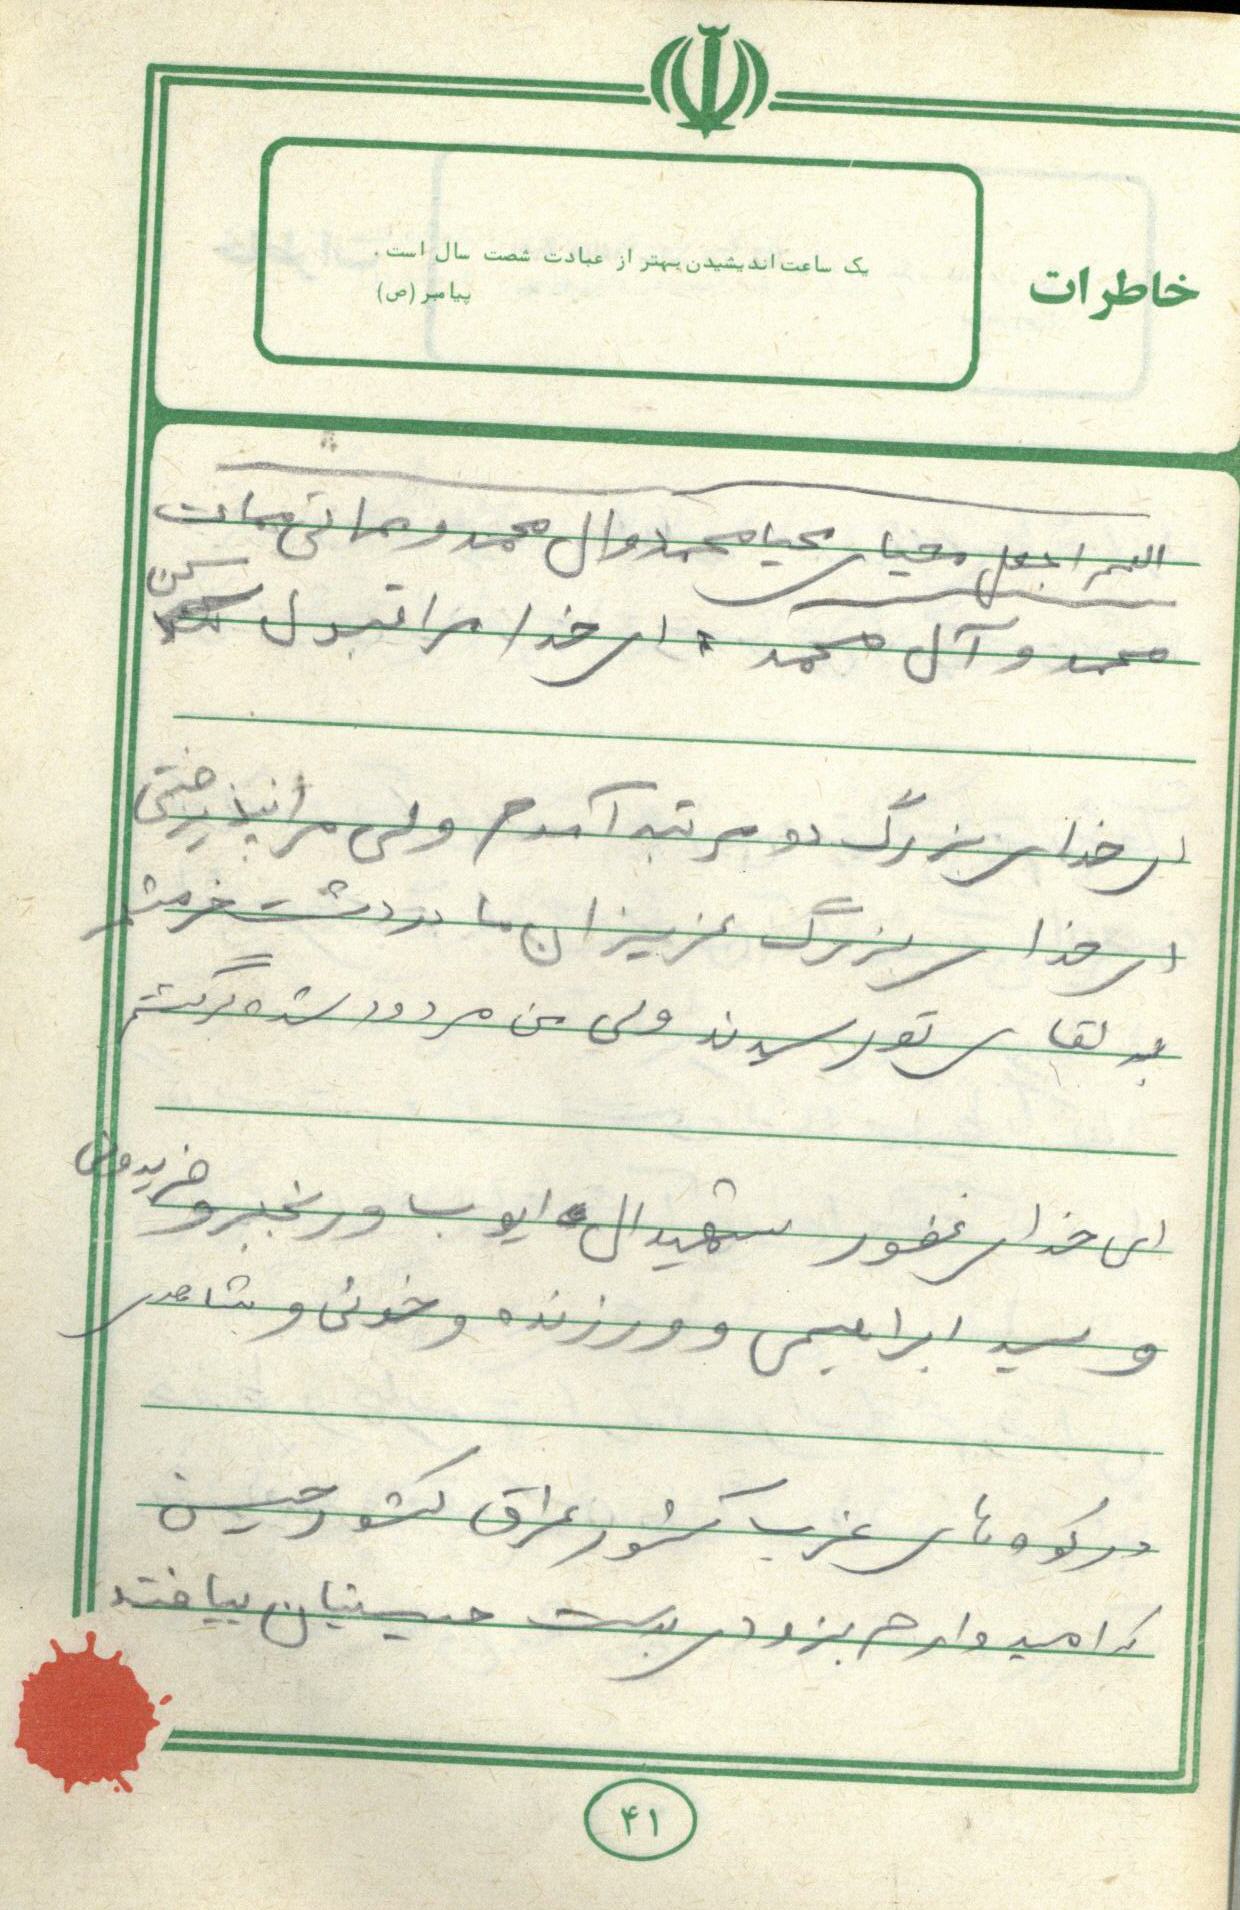 خاطرات
یک ساعت اندیشیدن بهتر از عبادت شصت سال است.
پیامبر (ص)
اللهم اجعل محیای محیا محمد وال محمد و مماتی ممات
محمد و آل محمد ای خدا مرا قبول کن
ای خدای بزرگ دو مرتبه آمدم ولی مرا نپذیرفتی
ای خدای بزرگ عزیزان ما در دشت خرمشهر
به لقای تو رسیدند ولی من مردود شده برگشتم
ای خدای غفور شهیدال ایوب و رنجبر و فریدونی
و سید ابراهیمی و ورزنده و خونی و شاهدی
در کوه های غرب کشور عراق کشور حسین
که امیدوارم بزودی بدست حسینیان بیافتد
۴۱